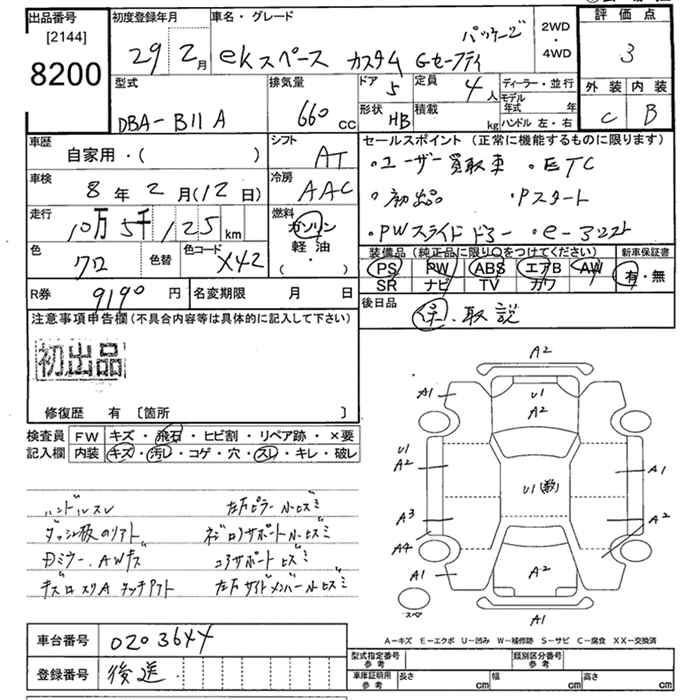 出品番号
[2144]
8200
初度登録年月
29 2月
車名・グレード
ekスペース カスタム Gセーフティ パッケージ
2WD
・
4WD
評価点
3
外装 内装
C B
型式
DBA-B11A
排気量
660 cc
ドア 5
定員 4人
形状 HB
積載 kg
ディーラー・並行
モデル年式 年
ハンドル 左・右
車歴
自家用・( )
シフト
AT
車検
8年2月(12日)
冷房
AAC
走行
10万5千125 km
燃料
ガソリン
軽油
・( )
色
クロ
色替
色コード
X42
セールスポイント (正常に機能するものに限ります)
・ユーザー買取車 ・ETC
・初出品 ・Pスタート
・PWスライドドアー ・e-
装備品(純正品に限り○をつけてください)
PS PW ABS エアB AW
SR ナビ TV カワ
新車保証書
有・無
R券 9190円
名変期限 月 日
後日品
保.取説
注意事項申告欄(不具合内容等は具体的に記入して下さい)
初出品
修復歴 有 〔箇所 〕
検査員記入欄
FW キズ・飛石・ヒビ割・リペア跡・×要
内装 キズ・汚レ・コゲ・穴・スレ・キレ・破レ
ハンドルスレ
左右ピラールーヒズミ
ダッシュ板のリアト
コアサポートヒズミ
ミラー.AWキズ
キズロスリA タッチアト
左右サイドメンバールーヒズミ
A2
A1
U1
A2
U1
A2
U1(数)
A1
A3
A2
A4
A1
A2
A1
スペア
A-キズ E-エクボ U-凹み W-補修跡 S-サビ C-腐食 XX-交換済
車台番号
0203644
登録番号
後送
型式指定番号
参考
類別区分番号
参考
車庫証明用
参考
長さ cm
幅 cm
高さ cm